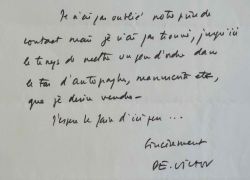 Je n'ai pas oublié notre prise de
contact mais je n'ai pas trouvé, jusqu'ici
le temps de mettre un peu d'ordre dans
le tas d'autographes, manuscrits etc,
que je désire vendre -
J'espère le faire d'ici peu ...
Sincèrement